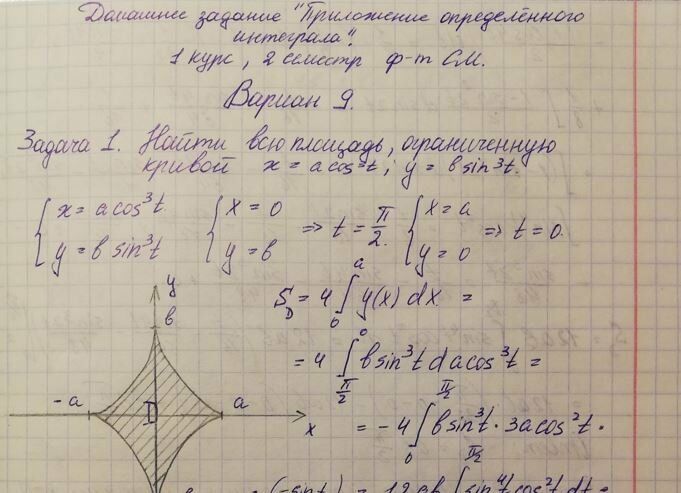 Домашнее задание "Приложение определённого
интеграла".
1 курс, 2 семестр ф-т СМ.
Вариан 9.
Задача 1. Найти всю площадь, ограниченную
кривой x = a cos³t; y = b sin³t.
{ x = a cos³t { x = 0 ⇒ t = π/2. { x = a ⇒ t = 0.
{ y = b sin³t { y = b { y = 0
S_D = 4 ∫₀ᵃ y(x) dx =
= 4 ∫_{π/2}^{0} b sin³t d a cos³t =
= -4 ∫₀^{π/2} b sin³t · 3a cos²t ·
(-sin t) = 12ab ∫^{π/2} sin⁴t cos²t dt =
y
b
-a
D
a
x